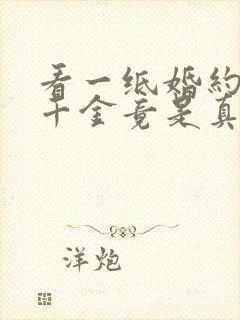 看一纸婚约
千金竟是真
洋炮